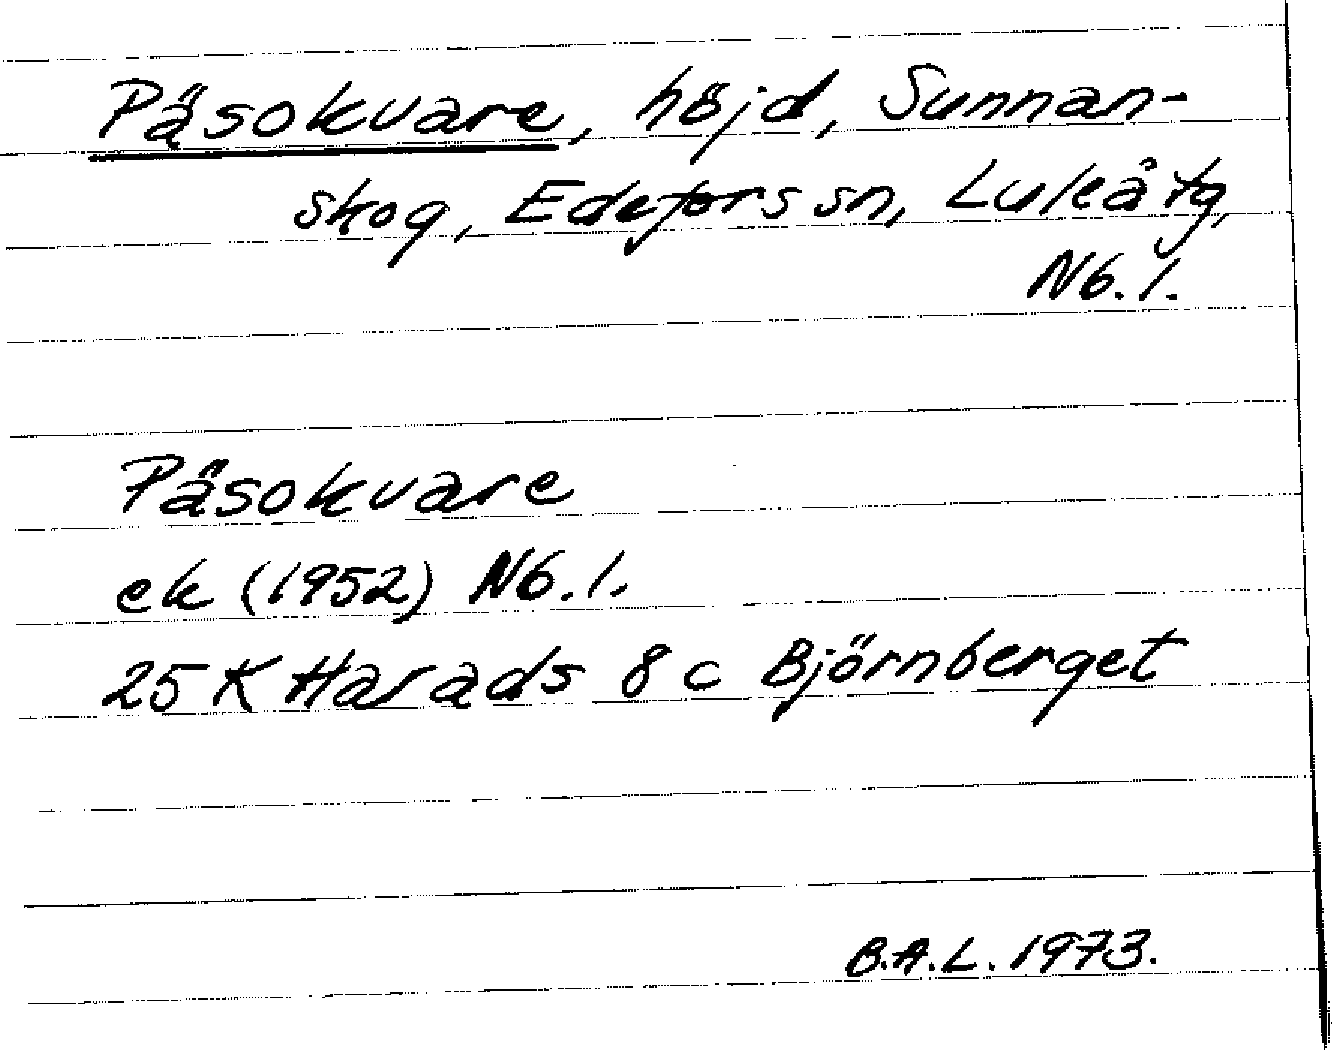 Päsokvare, höjd, Sunnan-
skog, Edefors sn, Luleå tg,
Nb. l.
Päsokvare
ek (1952) Nb. l.
25 K Harads 8 c Björnberget
B.A.L. 1973.